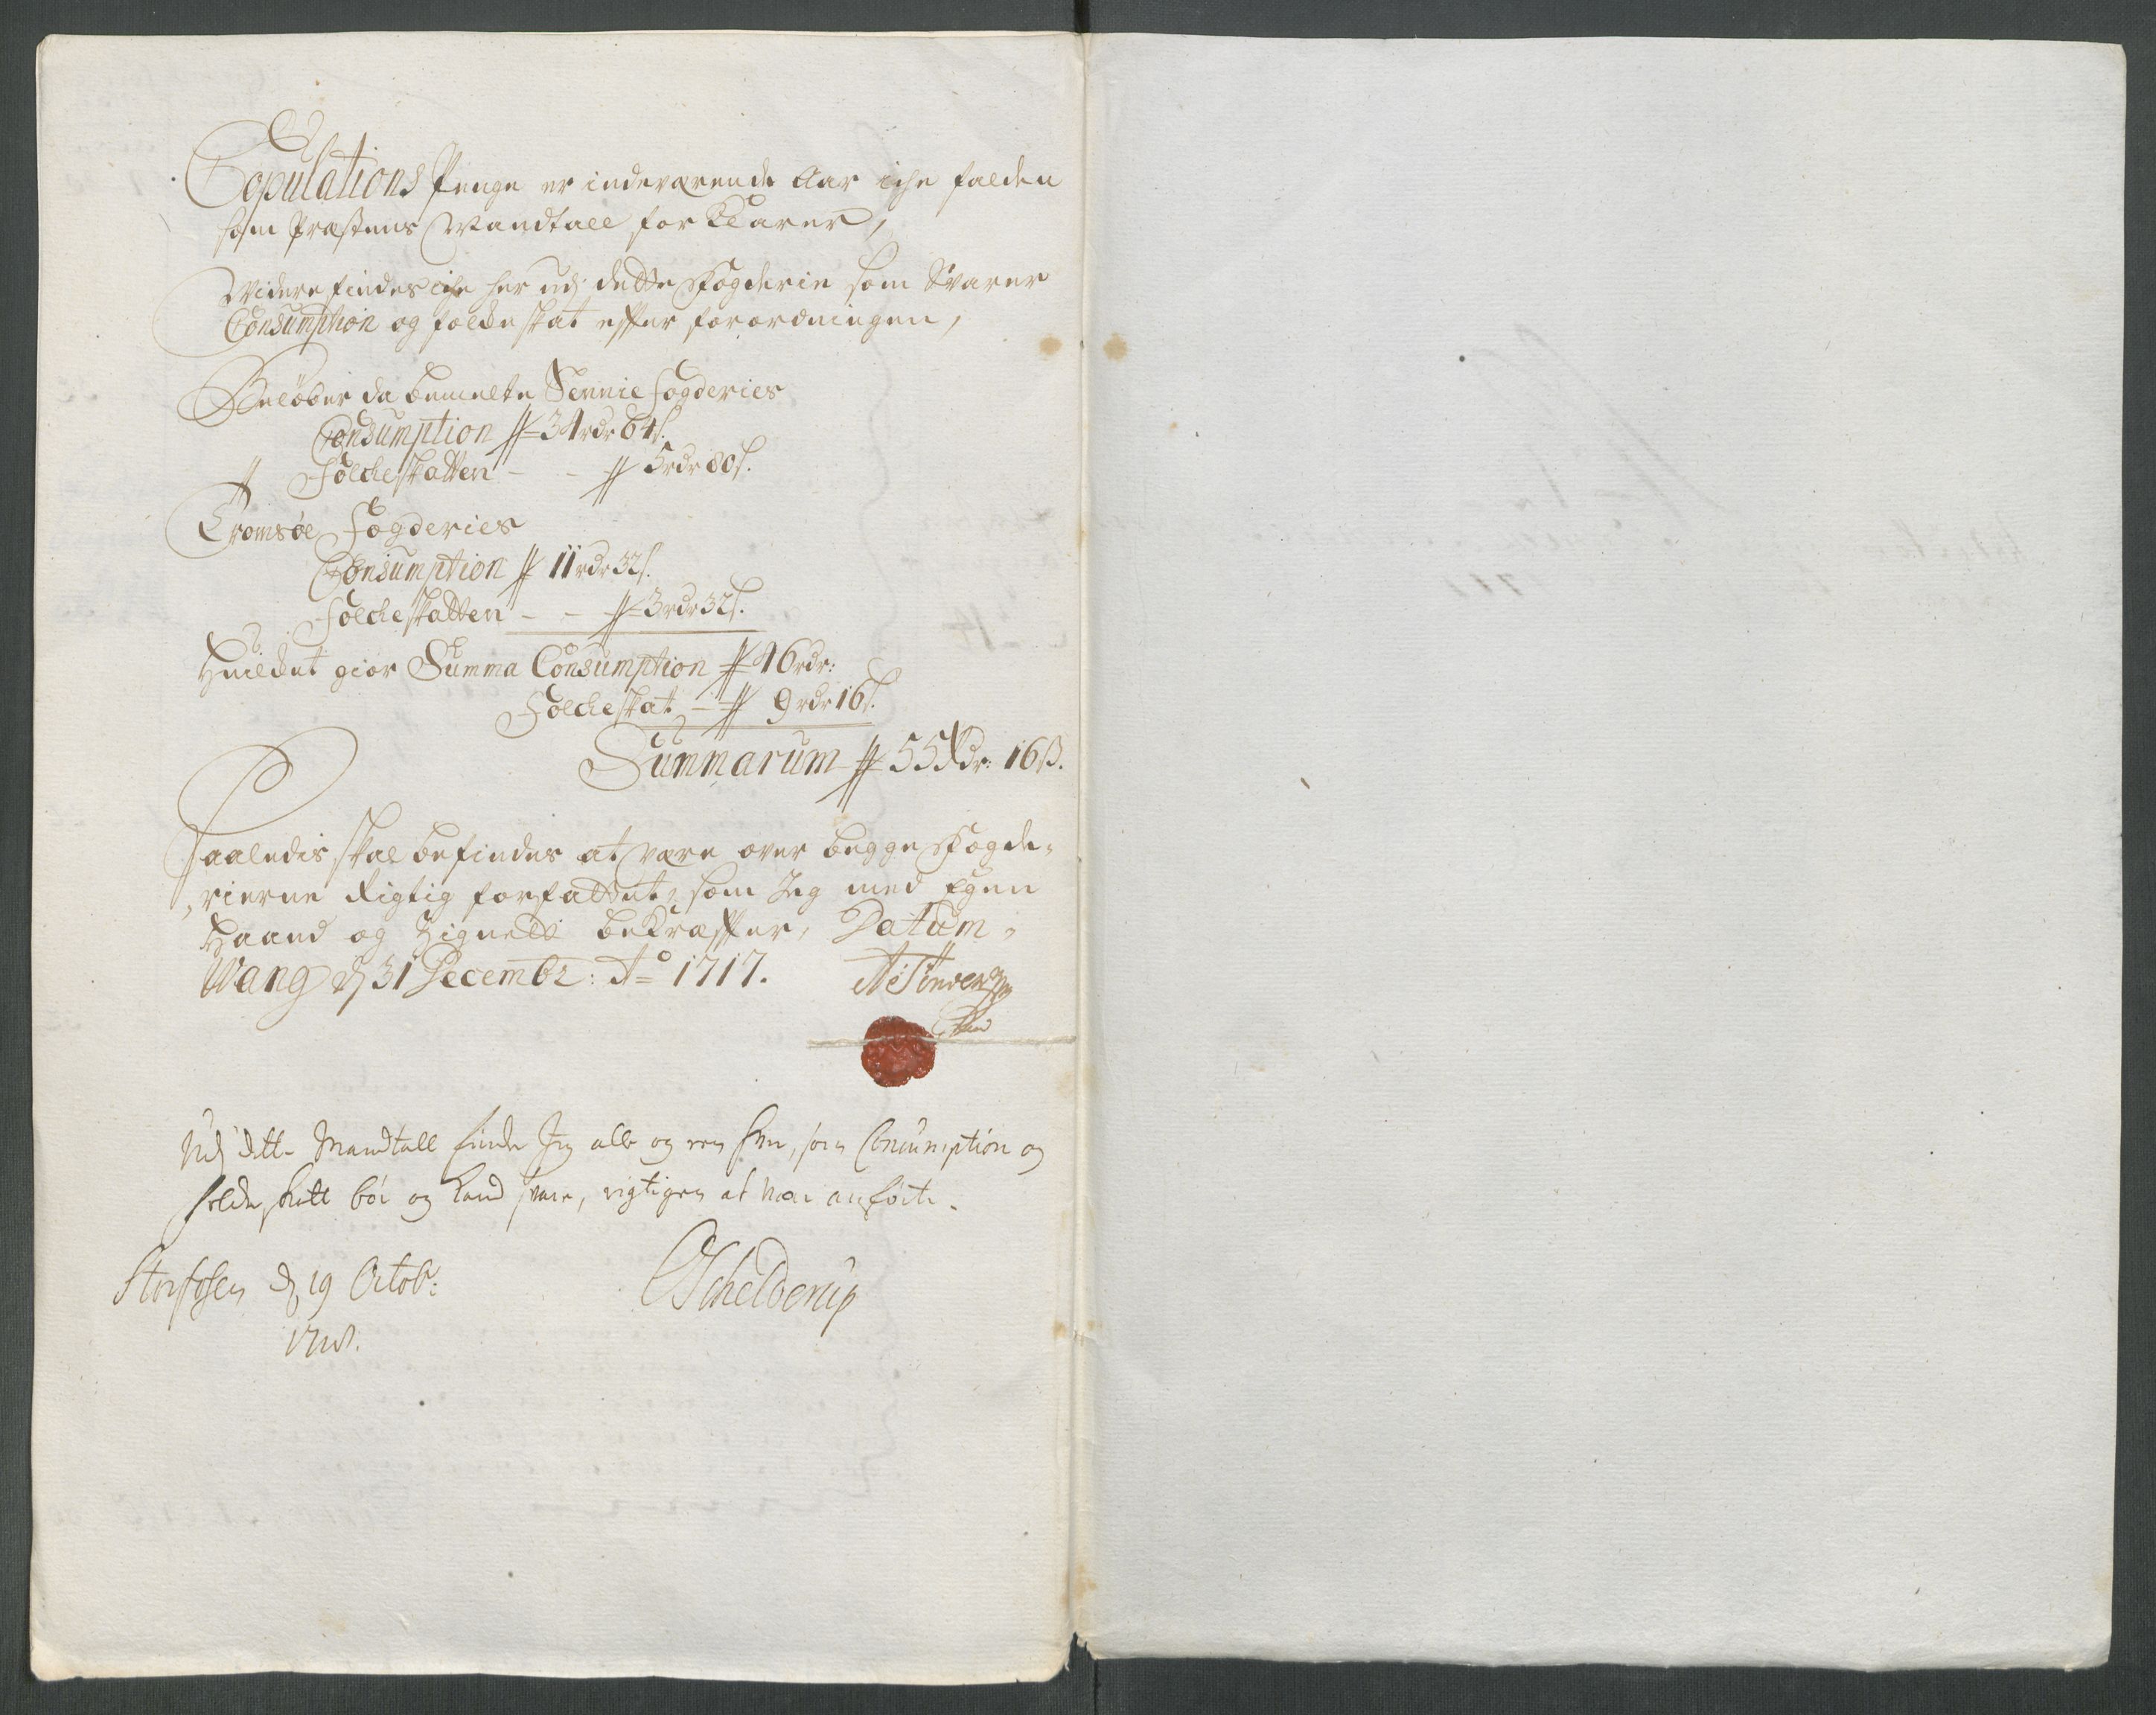 Copulations Penge er indeværende Aar iche falden
som Præstens Mandtall forklarer,
Videre findes iche her udj dette Fogderie som Svarer
Consumption og folche skat effter forordningen,
Beløber da bemelte Sennie Fogderies
Consumption # 34 rdr 64 s.
Folcheskatten - - # 5 rdr 80 s.
Tromsøe Fogderies
Consumption # 11 rdr 32 s.
Folcheskatten - - # 3 rdr 32 s.
Huilchet giør Summa Consumption # 46 rdr:
Folcheskat - # 9 rdr 16 s.
Summarum # 55 Rdr: 16 ß.
Saaledis skal befindes at være over begge Fogde-
rierne Rigtig forfattet, som Jeg med Egen
Haand og Zignete bekræffter, Datum
Wang d 31 Decembr: Ao 1717.
Udj dette Mandtall finder Jeg alle og een hver, som Consumption og
folche skatt bør og kand svare, rigtigen at være anførte.
Storfosen d 19 Octob:
1718.
Schelderup